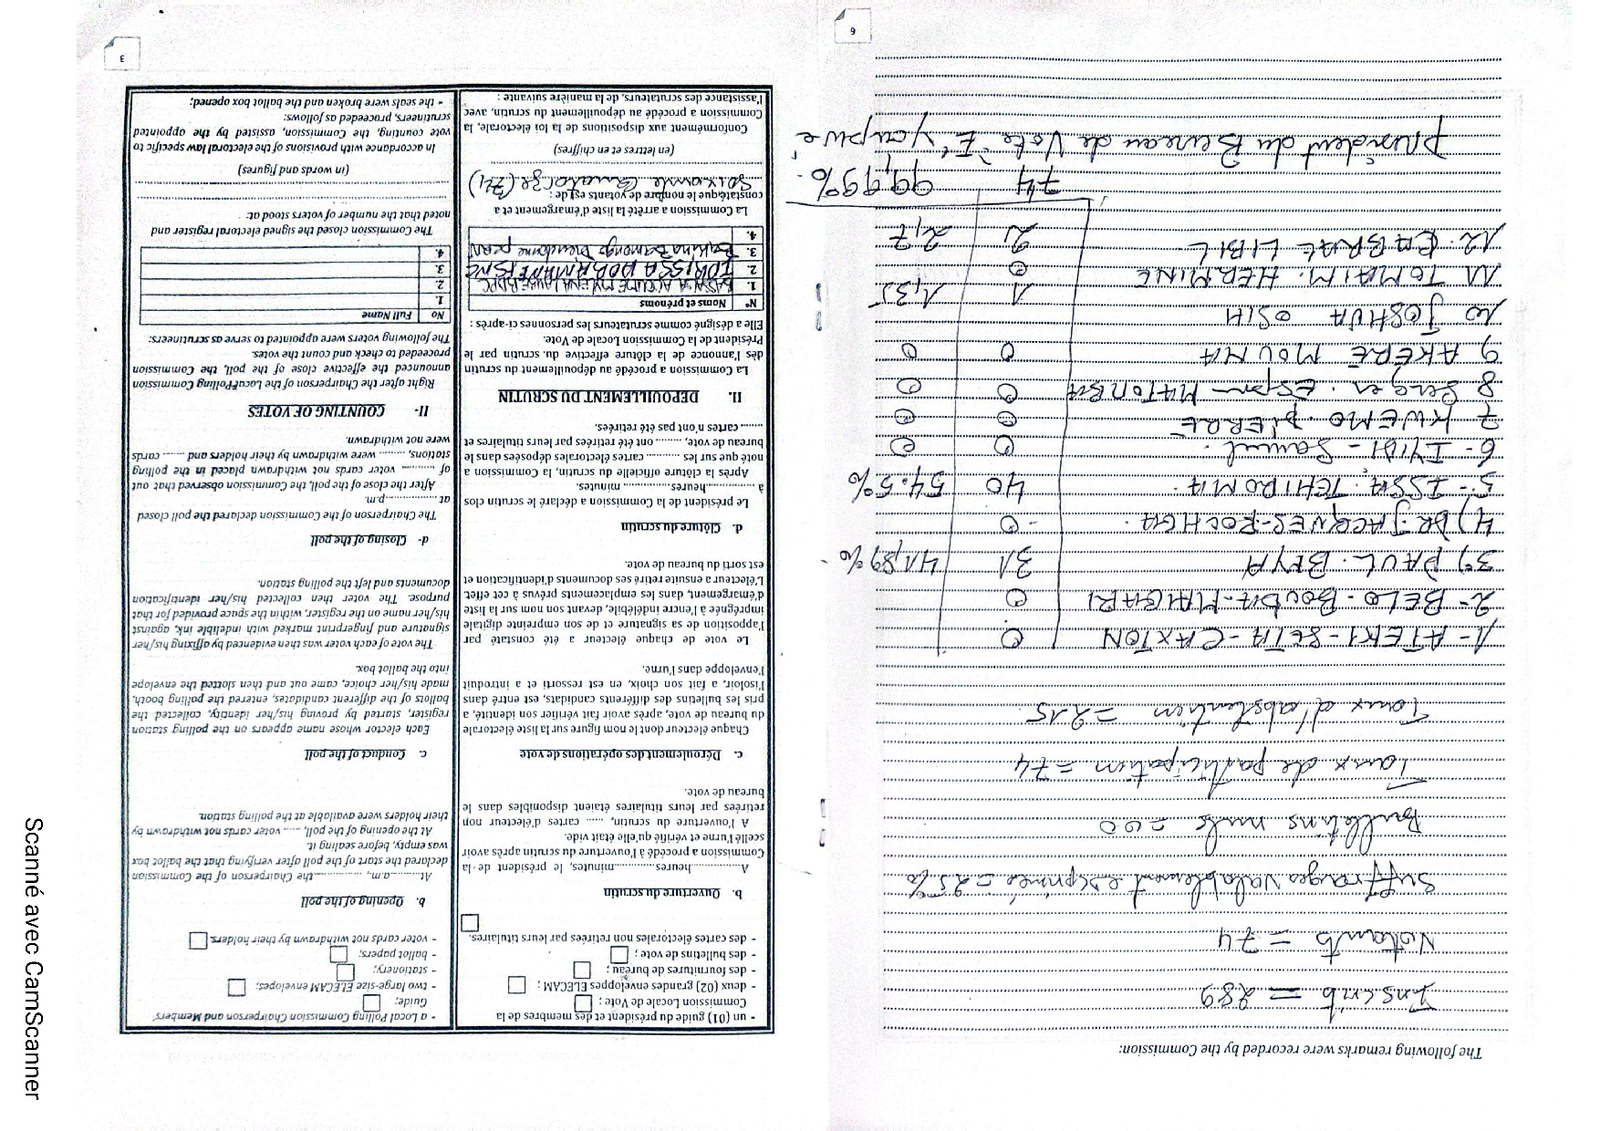 The following remarks were recorded by the Commission:
Inscrits = 289
Votants = 74
Suffrages valablement exprimés = 25%
Bulletins nuls = 00
Taux de participation = 74
Taux d'abstention = 215
1- ATEKI-SETA-CAXTON 0
2- BELO-BOUBA-MAIGARI 0
3) PAUL. BIYA 31 41,89%
4) DR. JACQUES-BOUHGA 0
5- ISSA. TCHIROMA. 40 54.5%
6- IYIDI-Samuel. 0 0
7 KWEMO. PIERRE 0 0
8 Serges. Espoir-MATOMBA 0 0
9 AKERE MOUNA 0 0
10 JOSHUA OSIH 1 1,35
11 TOMAIM. HERMINE 0
12. CABRAL LIBIL 2 2,7
74 99,99%
président du Bureau de Vote "E" youpwé
6
- un (01) guide du président et des membres de la
Commission Locale de Vote ;
- deux (02) grandes enveloppes ELECAM ;
- des fournitures de bureau ;
- des bulletins de vote ;
- des cartes électorales non retirées par leurs titulaires.
b. Ouverture du scrutin
A ......heures.........minutes, le président de la
Commission a procédé à l'ouverture du scrutin après avoir
scellé l'urne et vérifié qu'elle était vide.
A l'ouverture du scrutin, ...... cartes d'électeur non
retirées par leurs titulaires étaient disponibles dans le
bureau de vote.
c. Déroulement des opérations de vote
Chaque électeur dont le nom figure sur la liste électorale
du bureau de vote, après avoir fait vérifier son identité, a
pris les bulletins des différents candidats, est entré dans
l'isoloir, a fait son choix, en est ressorti et a introduit
l'enveloppe dans l'urne.
Le vote de chaque électeur a été constaté par
l'apposition de sa signature et de son empreinte digitale
imprégnée à l'encre indélébile, devant son nom sur la liste
d'émargement, dans les emplacements prévus à cet effet.
L'électeur a ensuite retiré ses documents d'identification et
est sorti du bureau de vote.
d. Clôture du scrutin
Le président de la Commission a déclaré le scrutin clos
à ............heures............ minutes.
Après la clôture officielle du scrutin, la Commission a
noté que sur les ......... carte électorales déposées dans le
bureau de vote, ......... ont été retirées par leurs titulaires et
...... cartes n'ont pas été retirées.
II. DEPOUILLEMENT DU SCRUTIN
La Commission a procédé au dépouillement du scrutin
dès l'annonce de la clôture effective du scrutin par le
Président de la Commission Locale de Vote.
Elle a désigné comme scrutateurs les personnes ci-après :
N° Noms et prénoms
1. BASSAGA ACCUME MYLENA LAURE RDPC
2. IDRISSA DORAMANE FSNC
3. Bakina Bamongo Dieudonné PCRN
4.
La Commission a arrêté la liste d'émargement et a
constaté que le nombre de votants est de :
Soixante Quatorze (74)
(en lettres et en chiffres)
Conformément aux dispositions de la loi électorale, la
Commission a procédé au dépouillement du scrutin, avec
l'assistance des scrutateurs, de la manière suivante :
- a Local Polling Commission Chairperson and Members'
Guide;
- two large-size ELECAM envelopes;
- stationery;
- ballot papers;
- voter cards not withdrawn by their holders.
b. Opening of the poll
At.........a.m., ............the Chairperson of the Commission
declared the start of the poll after verifying that the ballot box
was empty, before sealing it.
At the opening of the poll, ..... voter cards not withdrawn by
their holders were available at the polling station.
c. Conduct of the poll
Each elector whose name appears on the polling station
register, started by proving his/her identity, collected the
ballots of the different candidates, entered the polling booth,
made his/her choice, came out and then slotted the envelope
into the ballot box.
The vote of each voter was then evidenced by affixing his/her
signature and fingerprint marked with indelible ink, against
his/her name on the register within the space provided for that
purpose. The voter then collected his/her identification
documents and left the polling station.
d- Closing of the poll
The Chairperson of the Commission declared the poll closed
at...............p.m.
After the close of the poll, the Commission observed that out
of ......... voter cards not withdrawn placed in the polling
stations, ......... were withdrawn by their holders and ...... cards
were not withdrawn.
II- COUNTING OF VOTES
Right after the Chairperson of the Local Polling Commission
announced the effective close of the poll, the Commission
proceeded to check and count the votes.
The following voters were appointed to serve as scrutineers:
No Full Name
1.
2.
3.
4.
The Commission closed the signed electoral register and
noted that the number of voters stood at:
(in words and figures)
In accordance with provisions of the electoral law specific to
vote counting, the Commission, assisted by the appointed
scrutineers, proceeded as follows:
- the seals were broken and the ballot box opened;
3
Scanné avec CamScanner